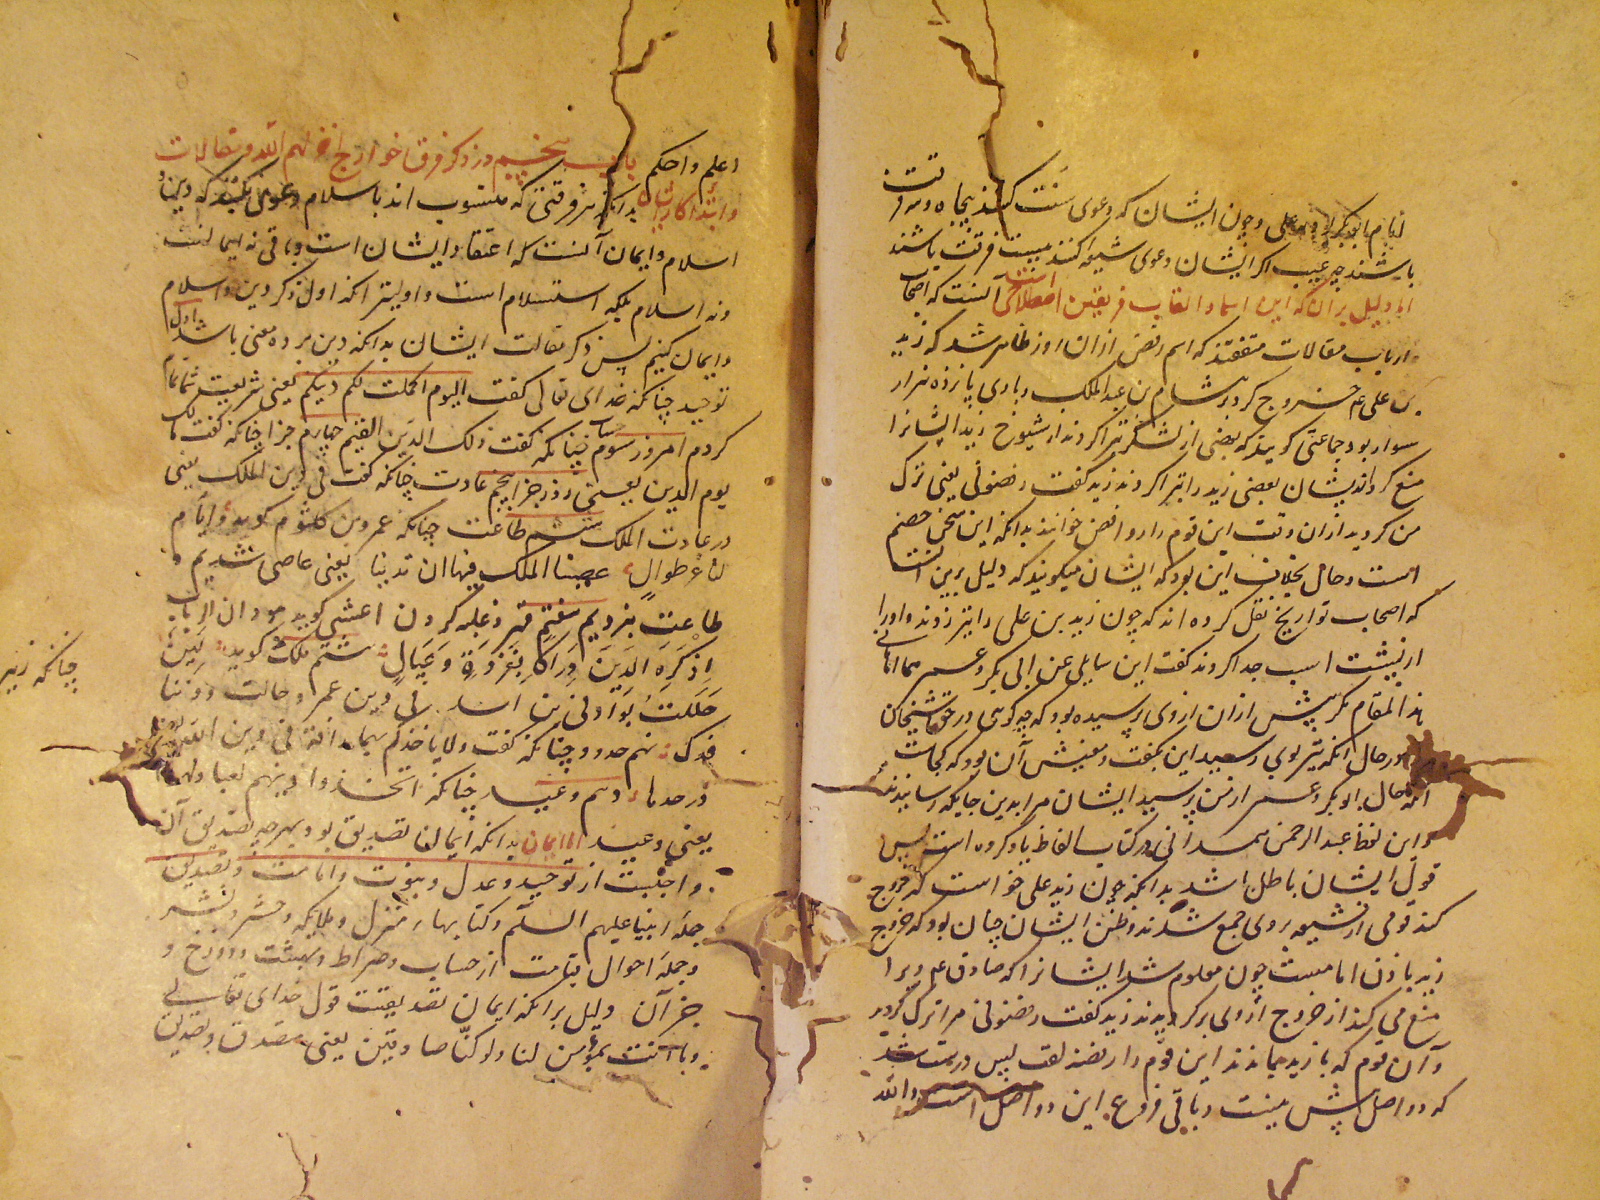 بنام ابوبکر و علی و چون ایشان که دعوی سنت کنند پنجاه و سه فرقت
باشند چه عیب اگر ایشان دعوی شیعه کنند بیست فرقت باشند
اما دلیل بر آن که این اسما و القاب فریقین اصطلاحی است آنست که اصحاب
و ارباب مقالات متفقند که اسم رفض ازان روز ظاهر شد که زید
بن علی عم خروج کرد بر هشام بن عبد الملک و با وی پانزده هزار
سوار بود جماعتی گویند که بعضی از لشکر تبرا کردند از شیوخ زید ایشانرا
منع کرد ایشان بعضی زید را تبرا کردند زید گفت رفضونی یعنی ترک
من کردید ازان وقت این قوم را روافض خوانند بدانکه این سخن خصم
است و حال بخلاف این بود که ایشان میگویند که دلیل برین آنست
که اصحاب تواریخ نقل کرده اند که چون زید بن علی را تیر زدند و او را
از پشت اسب جدا کردند گفت این سایلی عن ابی بکر و عمر هما اقامانی
هذا المقام مگر پیش ازان از وی پرسیده بود که چه گویی در حق شیخان
در حال آنکه تیر بوی رسید این بگفت و معنیش آن بود که کجاست
آنکه حال ابو بکر و عمر از من پرسید ایشان مرا بدین جایگه رسانیدند
و این لفظ عبد الرحمن همدانی در کتاب الفاظ یاد کرده است پس
قول ایشان باطل باشد بدانکه چون زید علی خواست که خروج
کند قومی از شیعه بر وی جمع شدند و ظن ایشان چنان بود که خروج
زید باذن امامست چون معلوم شد ایشانرا که صادق علم ویرا
منع می کند از خروج از وی برگردیدند زید گفت رفضونی مرا ترک کردید
و آن قوم که با زید بماندند این قوم را رفضه لقب پس درست شد
که دو اصل بیش نیست و باقی فروع این دو اصل است والله
اعلم و احکم باب پنجم در ذکر فرق خوارج اخزاهم الله و مقالات
و ابتدا کار ایشان بدانکه هر فرقتی که منسوب اند باسلام دعوی کنند که دین
اسلام و ایمان آنست که اعتقاد ایشان است و باقی نه ایمانست
و نه اسلام بلکه استسلام است و اولیتر آنکه اول ذکر دین و اسلام
و ایمان کنیم پس ذکر مقالت ایشان بدانکه دین بر ده معنی باشد اول
توحید چنانکه خدای تعالی گفت الیوم اکملت لکم دینکم یعنی شریعت شما تمام
کردم امروز سوم حساب چنانکه گفت ذلک الدین القیم چهارم جزا چنانکه گفت مالک
یوم الدین یعنی روز جزا پنجم عادت چنانکه گفت فی دین الملک یعنی
در عادت الملک ششم طاعت چنانکه عمرو بن کلثوم گوید و ایام
لنا غر طوال عصینا الملک فیها ان ندینا یعنی عاصی شدیم و
طاعت نبردیم هفتم قهر و غلبه کردن اعشی گوید هو دان الرباب
اذ کره الدین دراکا بغزوة و عیال هشتم ملک گوید لئن
حللت بجو فی بنی اسد فی دین عمرو حالت دوننا
فدک نهم حدود چنانکه گفت ولا یاخذکم بهما رافة فی دین الله یعنی
در حدها دهم وعید چنانکه اتخذوا دینهم لعبا ولهوا
یعنی وعید اما ایمان بدانکه ایمان تصدیق بود بهرچه تصدیق آن
واجبست از توحید و عدل و نبوت و امامت و تصدیق
جمله انبیا علیهم السلام و کتابهاء منزل و ملایکه و حشر و نشر
و جمله احوال قیامت از حساب و صراط و بهشت و دوزخ و
جز آن دلیل بر آنکه ایمان تصدیقست قول خدای تعالی
و ما انت بمؤمن لنا ولو کنا صادقین یعنی مصدق و تصدیق
چنانکه زهیر